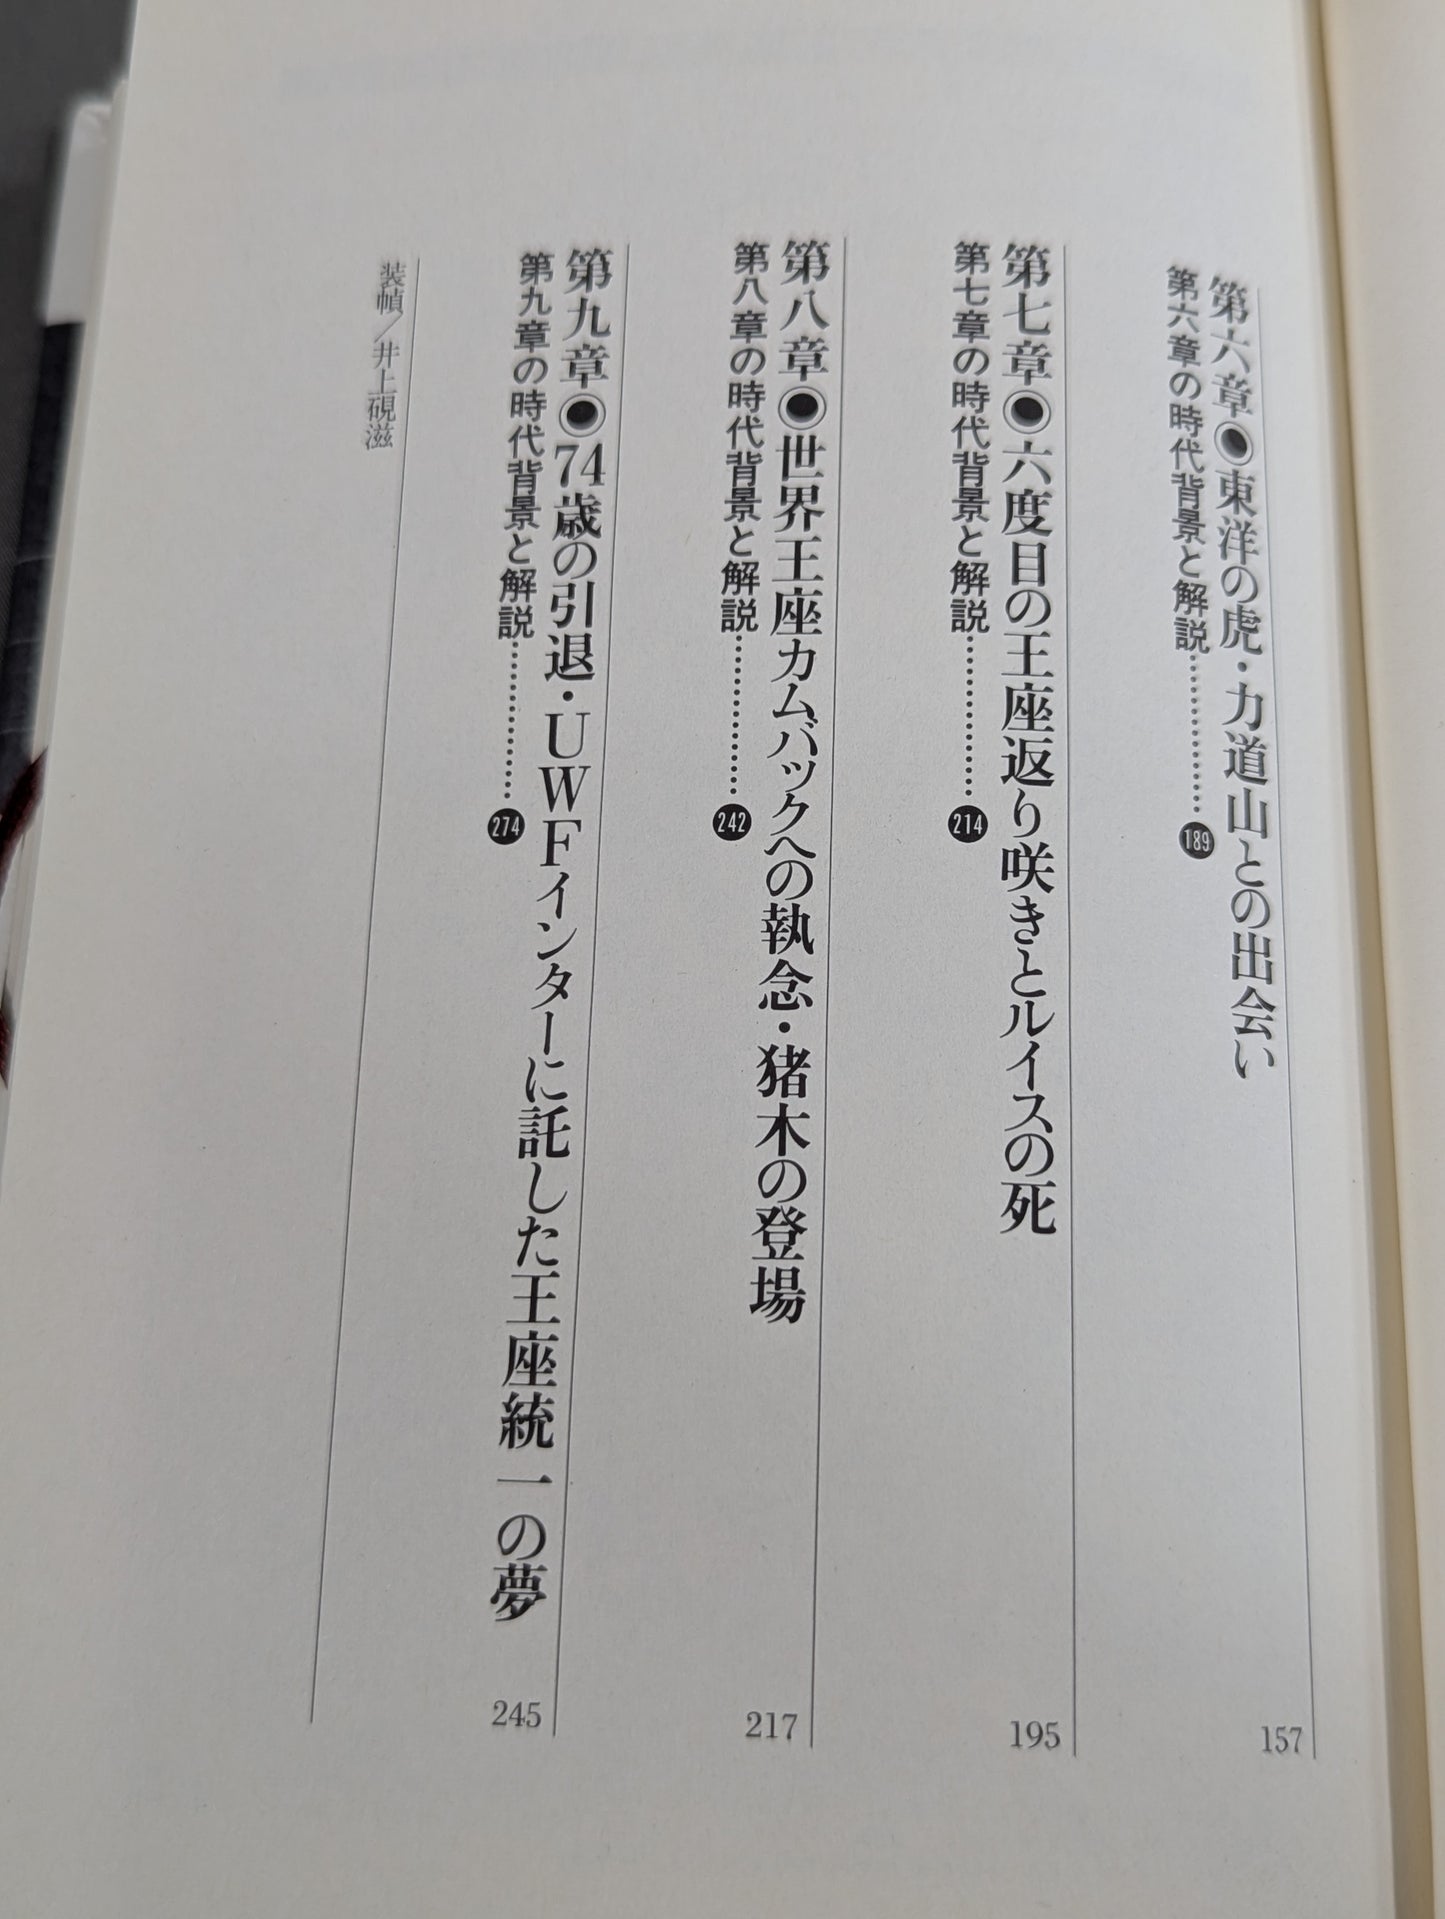 第六章◉東洋の虎・力道山との出会い 157
第六章の時代背景と解説…………189
第七章◉六度目の王座返り咲きとルイスの死 195
第七章の時代背景と解説…………214
第八章◉世界王座カムバックへの執念・猪木の登場 217
第八章の時代背景と解説…………242
第九章◉74歳の引退・UWFインターに託した王座統一の夢 245
第九章の時代背景と解説…………274
装幀/井上硯滋